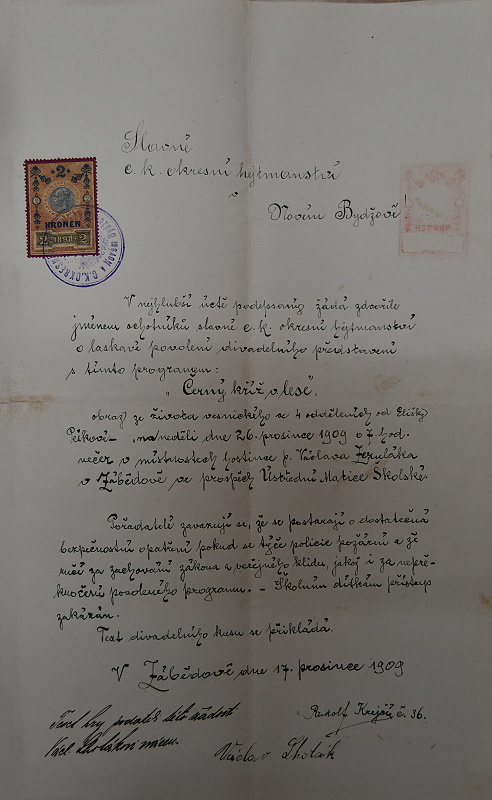 Slavné
c. k. okresní hejtmanství
v
Novém Bydžově!
2
KRONEN
2 1898 2
V nejhlubší úctě podepsaný žádá zdvořile
jménem ochotníků slavné c. k. okresní hejtmanství
o laskavé povolení divadelního představení
s tímto programem:
„Černý kříž v lese",
obraz ze života vesnického ve 4 odděleních od Elišky
Peškové – na neděli dne 26. prosince 1909 o 7. hod.
večer v místnostech hostince p. Václava Zezuláka
v Zábědově ve prospěch Ústřední Matice Školské.
Pořadatelé zavazují se, že se postarají o dostatečná
bezpečnostní opatření pokud se týče policie požární a že
ručí za zachování zákona a veřejného klidu, jakož i za nepře-
kročení povoleného programu. – Školním dítkám přístup
zakázán.
Text divadelního kusu se přikládá.
V Zábědově dne 17. prosince 1909
Rudolf Krejčí č. 36.
Text hry
Václav Lhoták